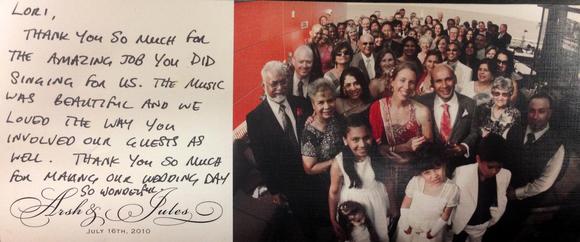 LORI,
THANK YOU SO MUCH FOR
THE AMAZING JOB YOU DID
SINGING FOR US. THE MUSIC
WAS BEAUTIFUL AND WE
LOVED THE WAY YOU
INVOLVED OUR GUESTS AS
WELL. THANK YOU SO MUCH
FOR MAKING OUR WEDDING DAY
SO WONDERFUL.
Arsh & Jules
JULY 16TH, 2010